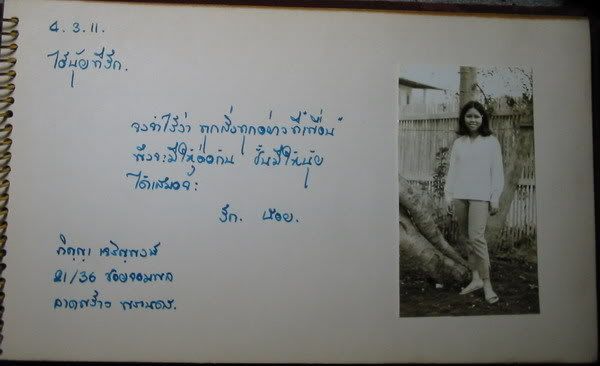 4.3.11.
ไอ้นุ้ยที่รัก.
จงจำไว้ว่า ทุกสิ่งทุกอย่าง ที่เพื่อน
พึงจะมีให้ต่อกัน ฉันมีให้นุ้ย
ได้เสมอจ้ะ
รัก. น้อย.
เจริญพงษ์
21/36 ซอยจอมพล
ลาดพร้าว พระนคร.